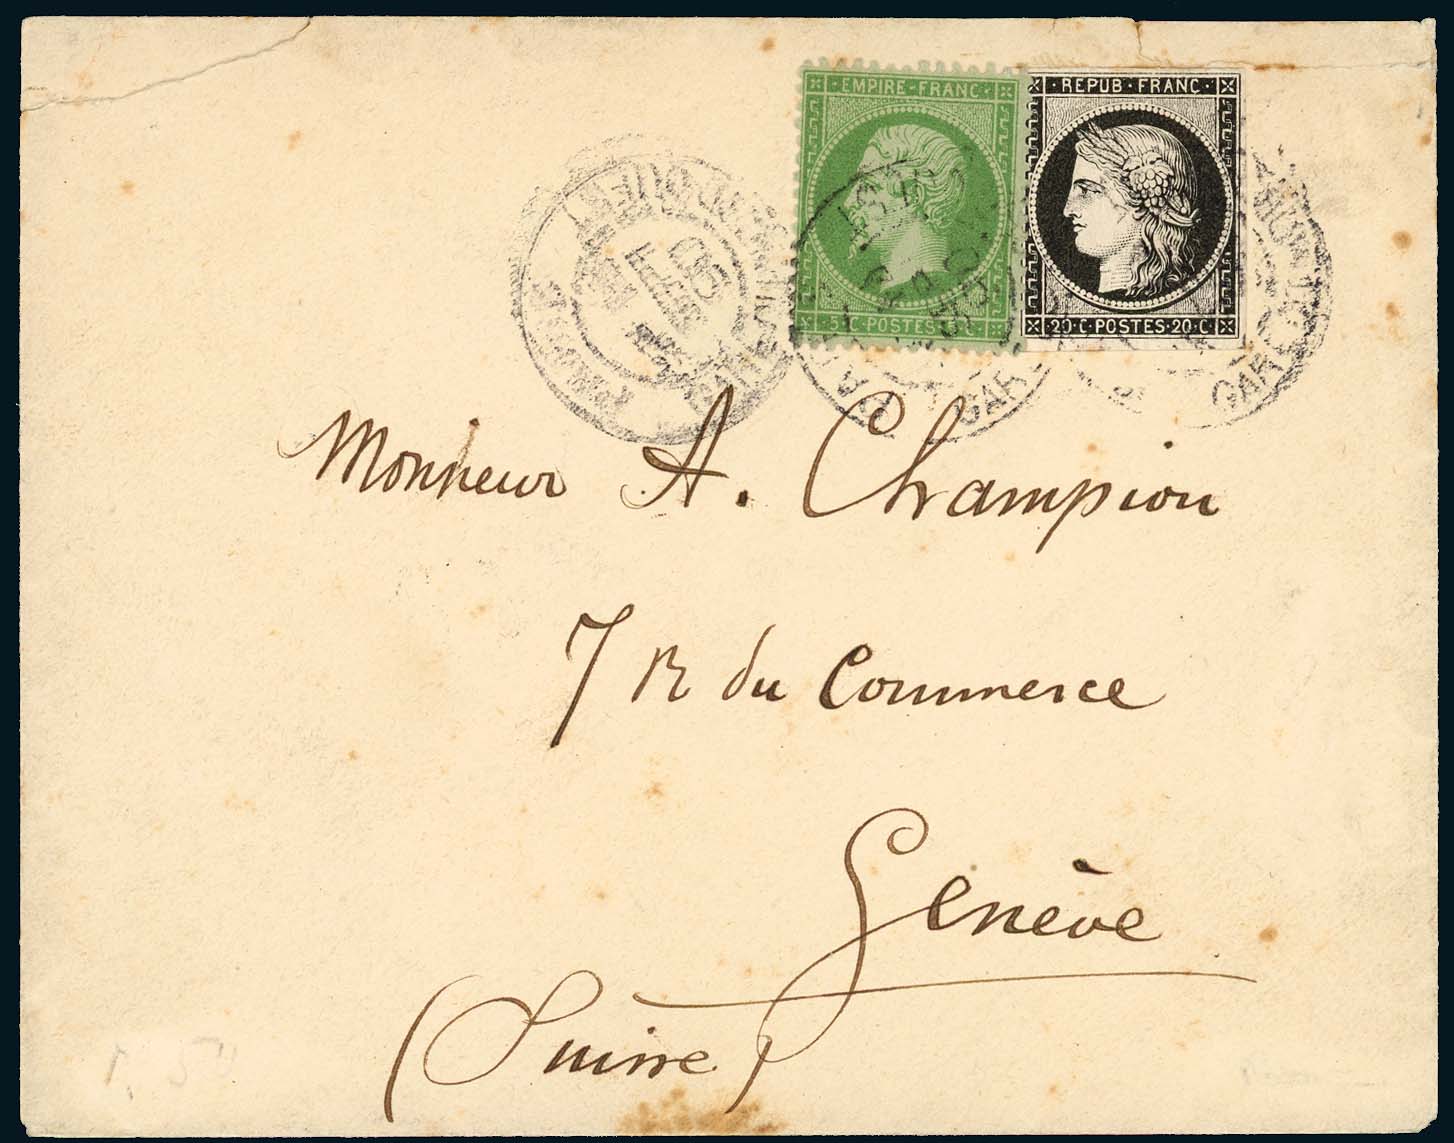 EMPIRE · FRANC
REPUB · FRANC
5 C POSTES 5 C
20 C POSTES 20 C
GARE
Monsieur A. Champion
7 R du Commerce
Genève
(Suisse)